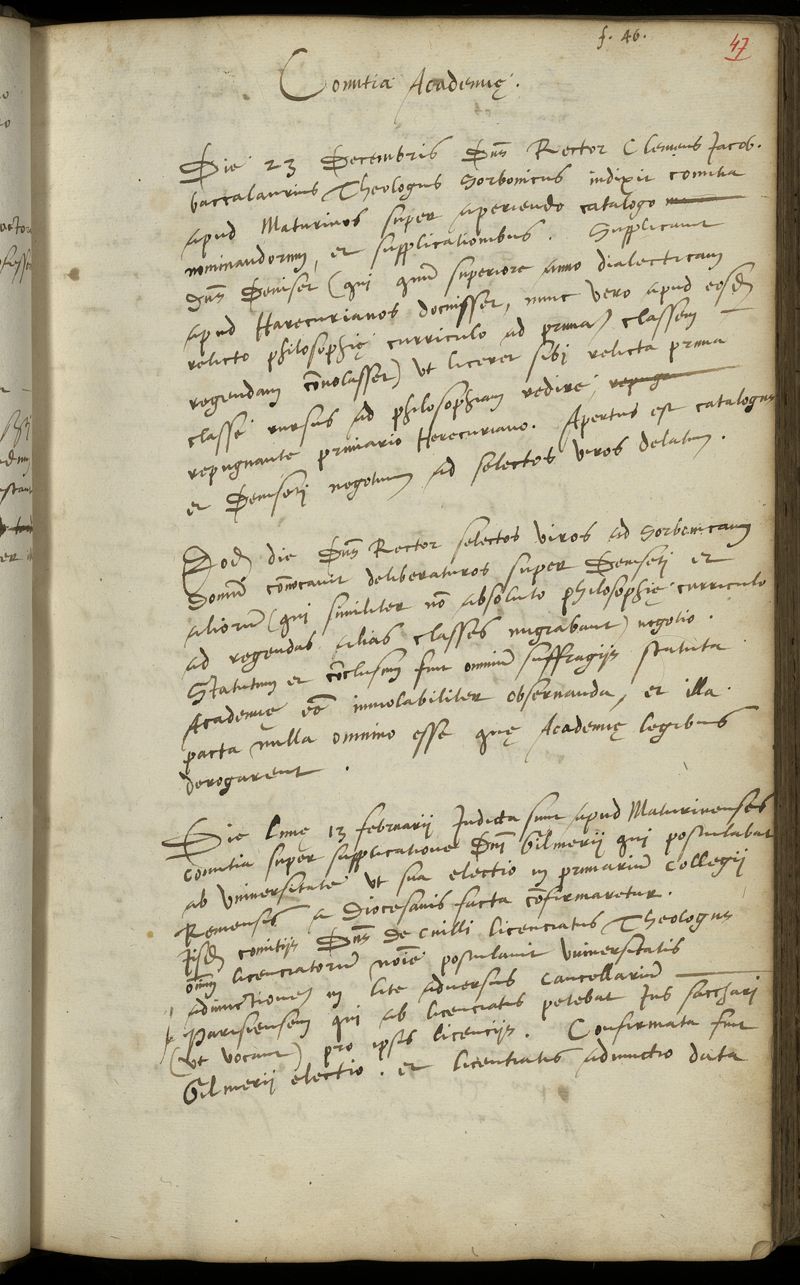 f. 46.
47
Comitia Academię.
Die 23 Decembris Dns Rector Clemens Jacob.
baccalaurius Theologus Sorbonicus indixit comitia
apud Maturinos super aperiendo catalogo
nominandorum, et supplicationibus. Supplicavit
Dns Deniset (qui quum superiore anno dialecticam
apud Harecurianos docuisset, nunc vero apud eosdem
relicto philosophię curriculo ad primam classem
regendam convolasset) ut liceret sibi relicta prima
classe rursus ad philosophiam redire, repugn
repugnante primario Herecuriano. Apertus est catalogus
et Deniseti negotium ad selectos viros delatum.
Eod die Dns Rector selectos viros ad Sorbonicam
domum convocavit deliberaturos super Deniseti et
aliorum (qui similiter non absoluto philosophię curriculo
ad regendas alias classes migrabant) negotio.
Statutum et conclusum fuit omnium suffragijs statuta
Academię esse inviolabiliter observanda, et illa
pacta nulla omnino esse quę Academię legibus
derogarent.
Die Lunę 13 februarij Indicta sunt apud Maturinenses
comitia super supplicatione Dni Gilmerij qui postulabat
ab Universitate ut sua electio in primarium Collegij
Remensis a Diocesanis facta confirmaretur.
Iisdem comitijs Dns de Cuilli licenciatus Theologus
omnium licenciatorum noīe postulavit Universitatis
adiunctionem in lite adversus Cancellarium
Parisiensem qui ab licenciatis petebat Jus sacchari
(ut vocant) pro ipsis licencijs. Confirmata fuit
Gilmerij electio. et licentiatis adiunctio data